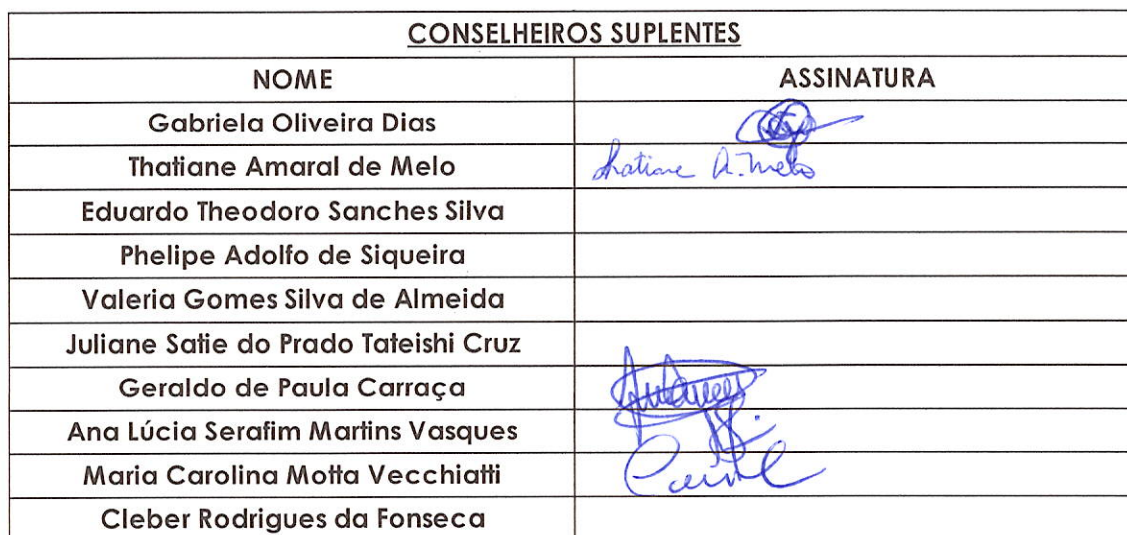 CONSELHEIROS SUPLENTES
NOME ASSINATURA
Gabriela Oliveira Dias
Thatiane Amaral de Melo Thatiane A. Melo
Eduardo Theodoro Sanches Silva
Phelipe Adolfo de Siqueira
Valeria Gomes Silva de Almeida
Juliane Satie do Prado Tateishi Cruz
Geraldo de Paula Carraça
Ana Lúcia Serafim Martins Vasques
Maria Carolina Motta Vecchiatti
Cleber Rodrigues da Fonseca